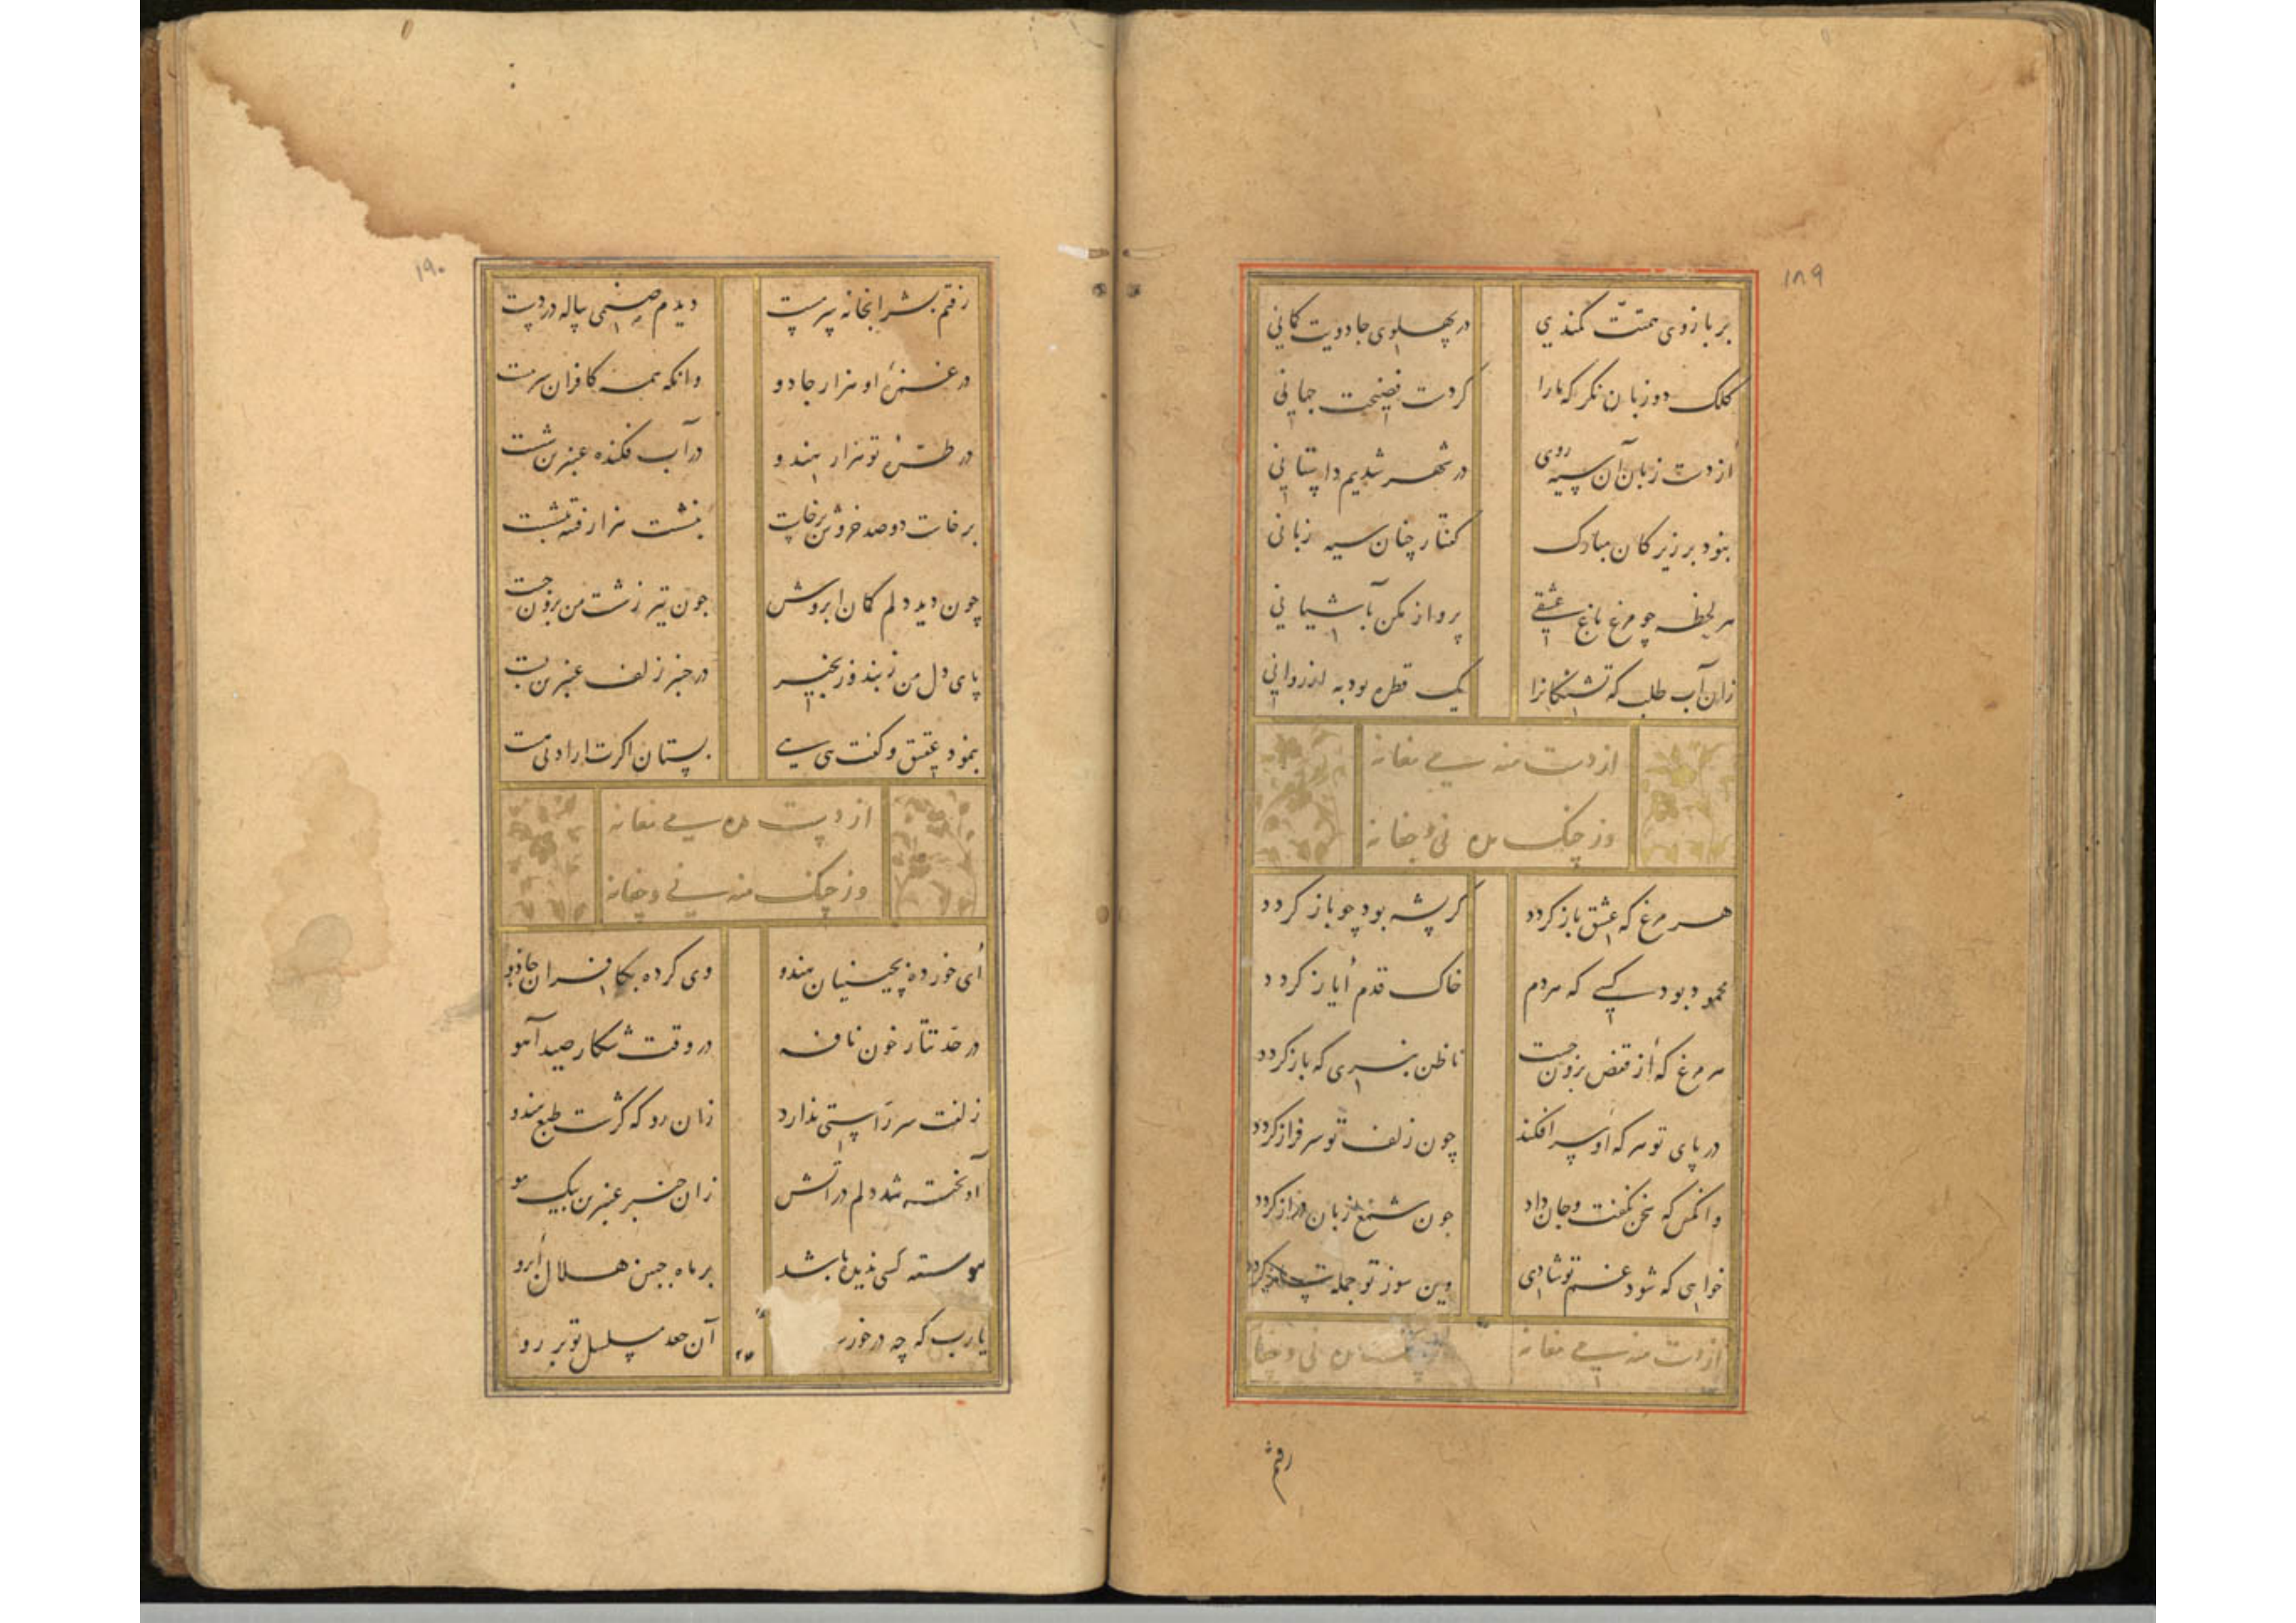 ۱۸۹
بر بازوی همتت کمندی در پهلوی جادویت کمانی
کلک دو زبان نکر که ما را کردت فضیحت جهانی
از دست زبان آن سیه روی در شهر شدیم داستانی
بنود بر زیر کان مبارک کفتار چنان سیه زبانی
هر لحظه چو مرغ باغ عشقی پرواز مکن بآشیانی
زان آب طلب که تشنکانرا یک قطره بود به از روانی
از دست منه می مغانه
وز چنک مده نی و چغانه
هر مرغ که عشق باز کردد کرپشه بود چو باز کردد
محمود بود کسی که مردم خاک قدم ایاز کردد
هر مرغ که از قفص برون جست تا ظن نبری که باز کردد
در پای تو هر که او سر افکند چون زلف تو سرفراز کردد
وانکس که سخن نکفت و جان داد چون شمع زبان دراز کردد
خواهی که شود غم تو شادی وین سوز تو جمله کردد
از دست منه می مغانه مده نی و چغا
رفتم
۱۹۰
رفتم بشرابخانه سرمست دیدم صنمی پیاله در دست
در غمزهٔ او هزار جادو وانکه همه کافران سرمست
در طرهٔ تو هزار هندو در آب فکنده عنبرین شست
برخاست دو صد خروش برخاست بنشست هزار فتنه بنشست
چون دید دلم کمان ابروش چون تیر ز شست من برون جست
پای دل من ز بند و زنجیر در چنبر زلف عنبرین بست
بنمود عقیق و کفت می می بستان اکرت ارادتی هست
از دست مده می مغانه
وز چنک منه نی و چغانه
ای خورده ز چینیان هندو وی کرده بکافران جادو
در حد تتار خون نافه در وقت شکار صید آهو
زلفت سر راستی ندارد زان رو که کژست طبع هندو
آویخته شد دلم در آتش زان چنبر عنبرین بیک مو
پیوسته کسی ندیده باشد بر ماه جبین هلال ابرو
یارب که چه در خور آن جعد مسلسل تو بر رو